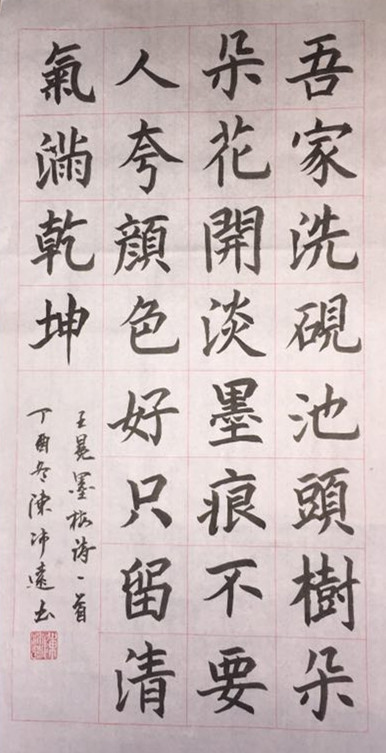 吾家洗硯池頭樹朵
朵花開淡墨痕不要
人夸顏色好只留清
氣滿乾坤
王冕墨梅詩一首
丁酉冬陳沛遠書